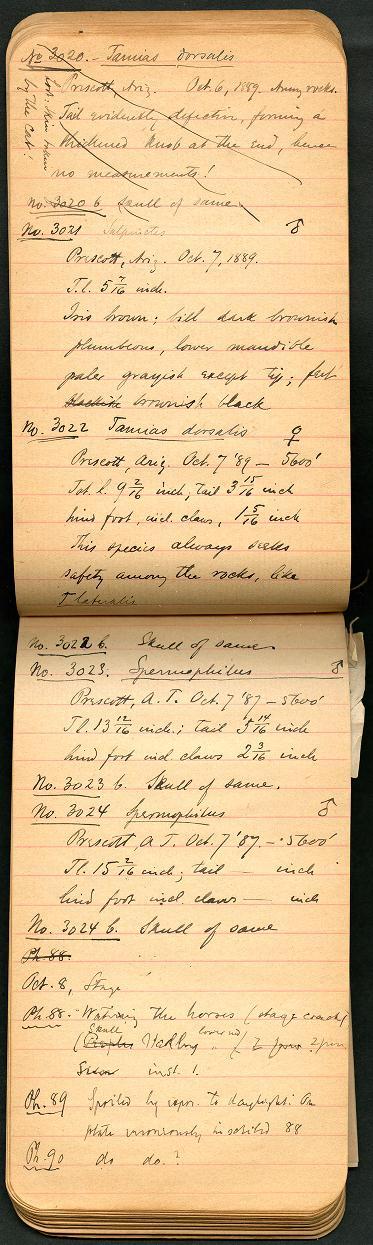 No 3020. - Tamias dorsalis
Lost: skin taken
by the cat!
Prescott, Ariz. Oct. 6, 1889. Among rocks.
Tail evidently defective, forming a
thickened knob at the end, hence
no measurements!
No. 3020 b Skull of same.
No. 3021 Salpinctes ♂
Prescott, Ariz. Oct. 7, 1889.
T.l. 5 7/16 inch.
Iris brown; bill dark brownish
plumbeous, lower mandible
paler grayish except tip; feet
blackish brownish black
No. 3022 Tamias dorsalis ♀
Prescott, Ariz. Oct. 7 '89 - 5600'
Tot. l. 9 2/16 inch, tail 3 15/16 inch
hind foot, incl. claws, 1 5/16 inch
This species always seeks
safety among the rocks, like
T lateralis
No. 3022 b. Skull of same.
No. 3023. Spermophilus ♂
Prescott, A. T. Oct. 7 '87 - 5600'
T.l. 13 12/16 inch; tail 5 14/16 inch
hind foot incl claws 2 3/16 inch
No. 3023 b. Skull of same.
No. 3024 Spermophilus ♂
Prescott, A. T. Oct. 7 '87. - 5600'
T.l. 15 2/16 inch; tail — inch
hind foot incl. claws — inch
No. 3024 b. Skull of same
Ph. 88.
Oct. 8, Stage
Ph. 88. Watering the horses (stage coach)
Skull
inst. 1.
Ph. 89 Spoiled by expos. to daylight. On
plate erroneously inscribed 88
Ph. 90 do do.?